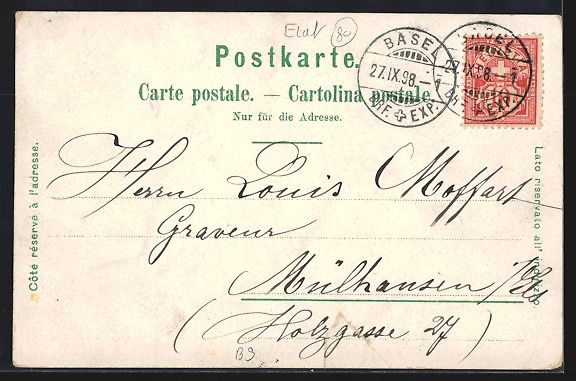 Etat 80
Postkarte.
BASEL
27.IX.98.–1
BRF. EXP.
BASEL
27.IX.98.–1
EXP.
Carte postale. — Cartolina postale.
Nur für die Adresse.
Côté réservé à l'adresse.
Lato riservato all' indirizzo.
Herrn Louis Moffart
Graveur
Mülhausen /Els
(Holzgasse 27)
B9.